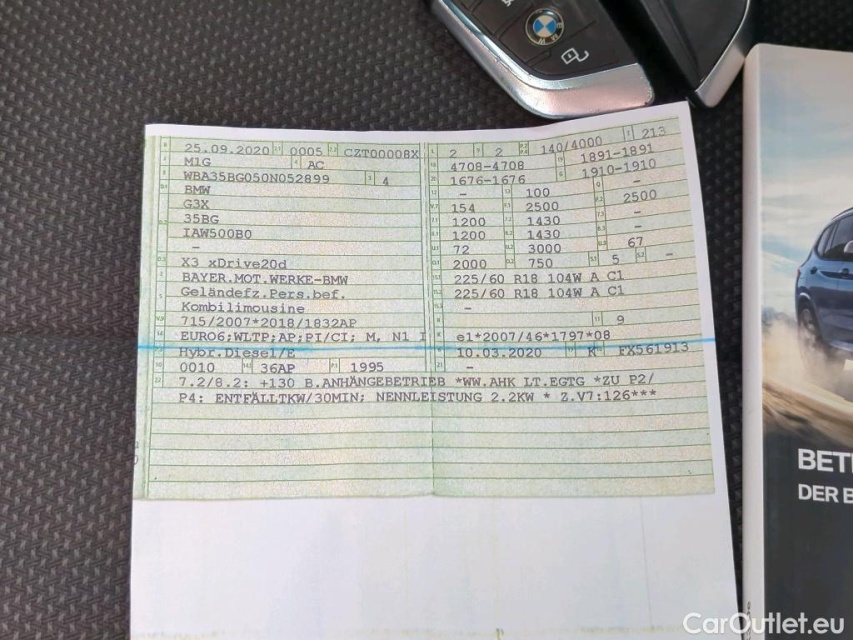 25.09.2020 0005 CZT00008X 2 2 140/4000 213
M1G AC 4708-4708 1891-1891
WBA35BG050N052899 4 1676-1676 1910-1910
BMW - 100 -
G3X 154 2500 - 2500
35BG 1200 1430 -
IAW500B0 1200 1430 -
- 72 3000 67
X3 xDrive20d 2000 750 5 -
BAYER.MOT.WERKE-BMW 225/60 R18 104W A C1
Geländefz.Pers.bef. 225/60 R18 104W A C1
Kombilimousine -
715/2007*2018/1832AP - 9
EURO6;WLTP;AP;PI/CI; M, N1 I e1*2007/46*1797*08
Hybr.Diesel/E 10.03.2020 K FX561913
0010 36AP 1995 -
7.2/8.2: +130 B.ANHÄNGEBETRIEB *WW.AHK LT.EGTG *ZU P2/
P4: ENTFÄLLTKW/30MIN; NENNLEISTUNG 2.2KW * Z.V7:126***
BMW
DER B
CarOutlet.eu